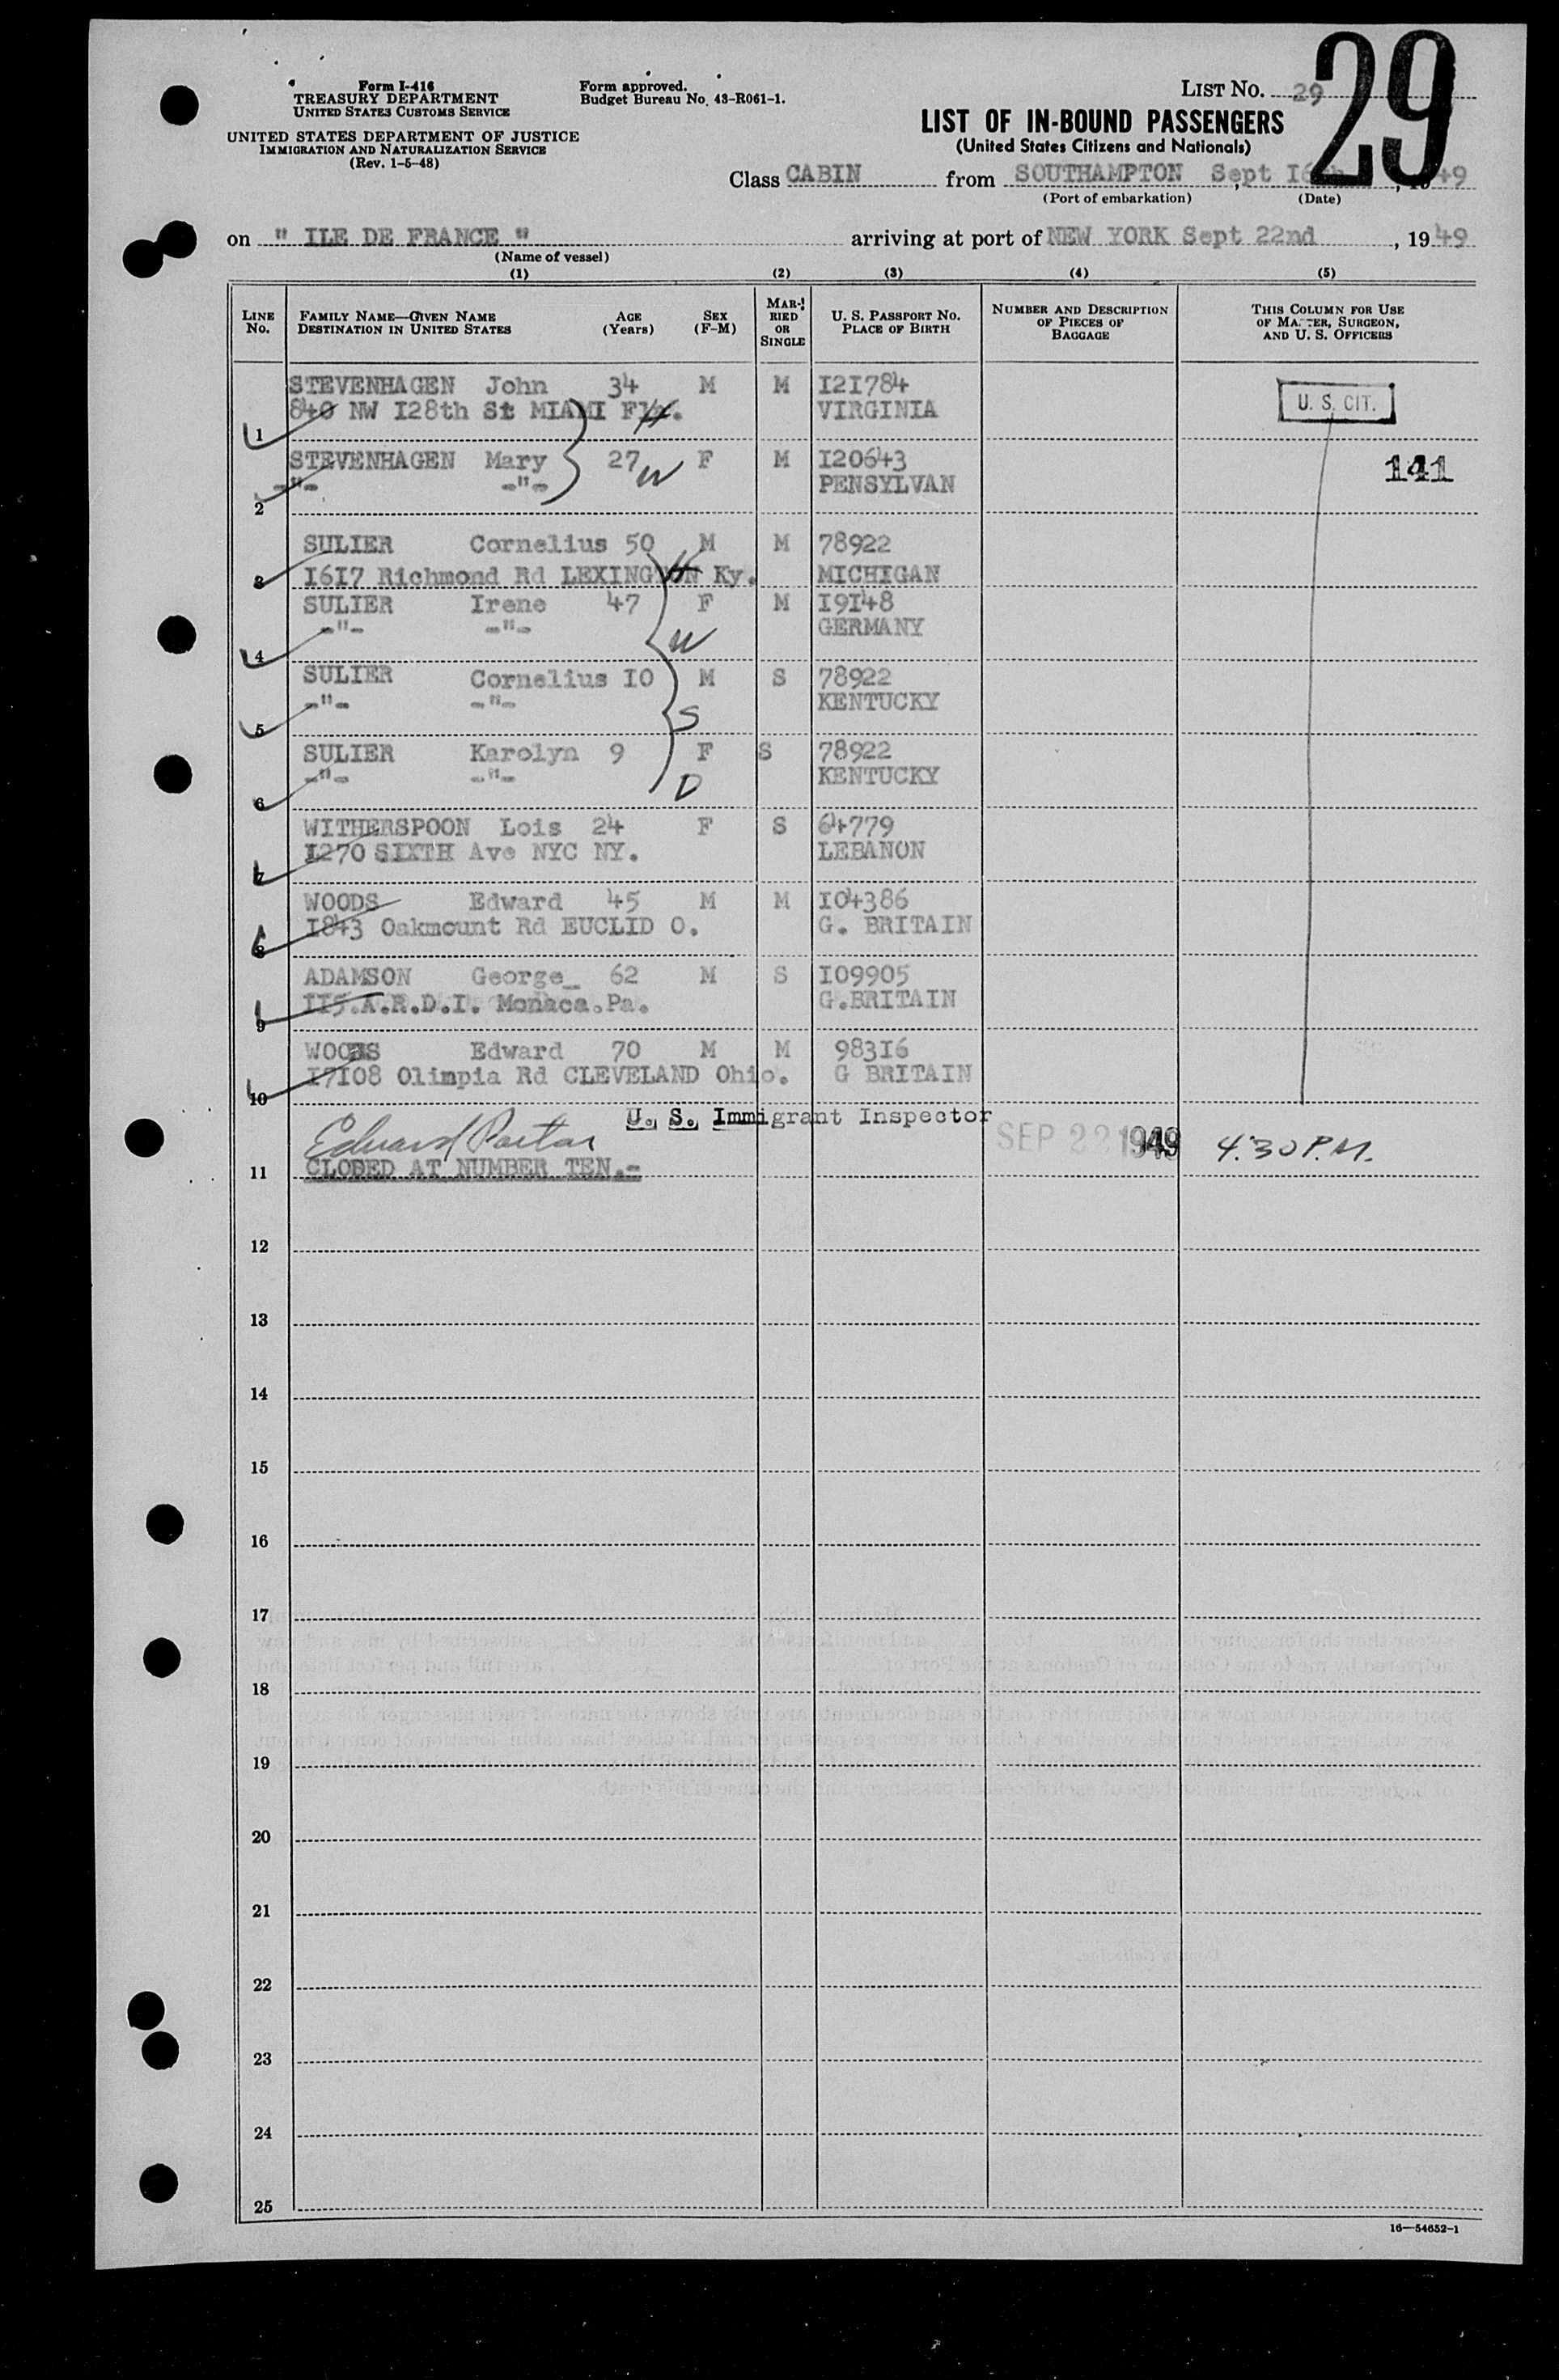 Form I-416
TREASURY DEPARTMENT
UNITED STATES CUSTOMS SERVICE
UNITED STATES DEPARTMENT OF JUSTICE
IMMIGRATION AND NATURALIZATION SERVICE
(Rev. 1-5-48)
Form approved.
Budget Bureau No. 43-R061-1.
LIST No. 29
29
LIST OF IN-BOUND PASSENGERS
(United States Citizens and Nationals)
Class CABIN from SOUTHAMPTON Sept 16th, 1949
(Port of embarkation) (Date)
on " ILE DE FRANCE " arriving at port of NEW YORK Sept 22nd, 1949
(Name of vessel)
(1) (2) (3) (4) (5)
LINE No. FAMILY NAME—GIVEN NAME DESTINATION IN UNITED STATES AGE (Years) SEX (F-M) MARRIED OR SINGLE U. S. PASSPORT No. PLACE OF BIRTH NUMBER AND DESCRIPTION OF PIECES OF BAGGAGE THIS COLUMN FOR USE OF MASTER, SURGEON, AND U. S. OFFICERS
STEVENHAGEN John 34 M M I21784 U. S. CIT.
1 840 NW I28th St MIAMI Fla. H VIRGINIA
STEVENHAGEN Mary 27 W F M I20643 141
2 -"- -"- PENSYLVAN
SULIER Cornelius 50 M M 78922
3 I6I7 Richmond Rd LEXINGTON Ky. H MICHIGAN
SULIER Irene 47 F M I9I48
4 -"- -"- W GERMANY
SULIER Cornelius I0 M S 78922
5 -"- -"- S KENTUCKY
SULIER Karolyn 9 F S 78922
6 -"- -"- D KENTUCKY
WITHERSPOON Lois 24 F S 64779
7 I270 SIXTH Ave NYC NY. LEBANON
WOODS Edward 45 M M I04386
8 I843 Oakmount Rd EUCLID O. G. BRITAIN
ADAMSON George_ 62 M S I09905
9 II5.A.R.D.I. Monaca.Pa. G.BRITAIN
WOODS Edward 70 M M 983I6
10 I7I08 Olimpia Rd CLEVELAND Ohio. G BRITAIN
U. S. Immigrant Inspector
Edward SEP 22 1949 4:30 P.M.
11 CLODED AT NUMBER TEN.-
12
13
14
15
16
17
18
19
20
21
22
23
24
25
16—54652-1